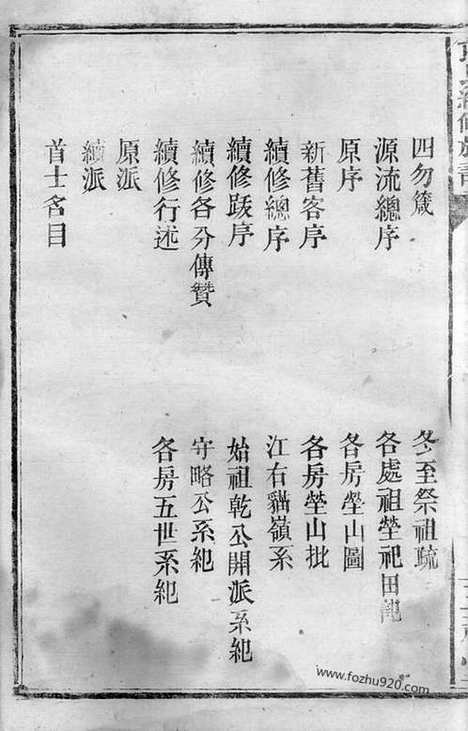 四勿箴
源流總序
原序
新舊客序
續修總序
續修跋序
續修各分傳贊
續修行述
原派
續派
首士名目
冬至祭祖疏
各處祖塋祀田
各房塋山圖
各房塋山批
江右貓嶺系
始祖乾公開派系紀
守略公系紀
各房五世系紀
www.fozhu920.com